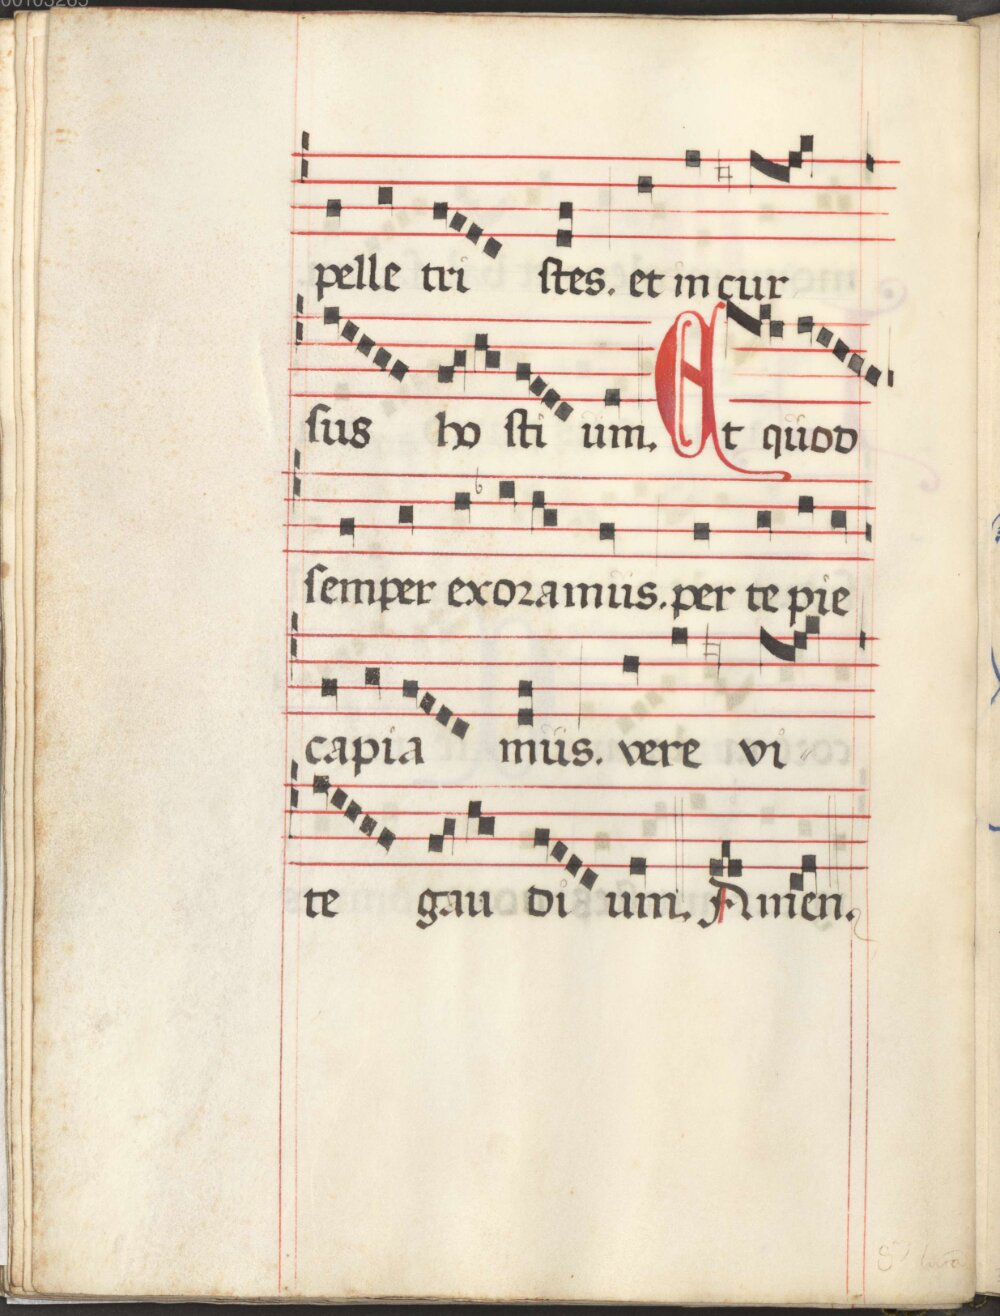 00103265
pelle tri stes. et in cur
sus ho sti um. Et quod
semper exoramus. per te pie
capia mus. vere vi
te gau di um. Amen.